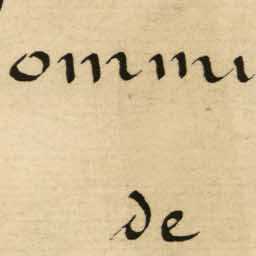 ommu
de